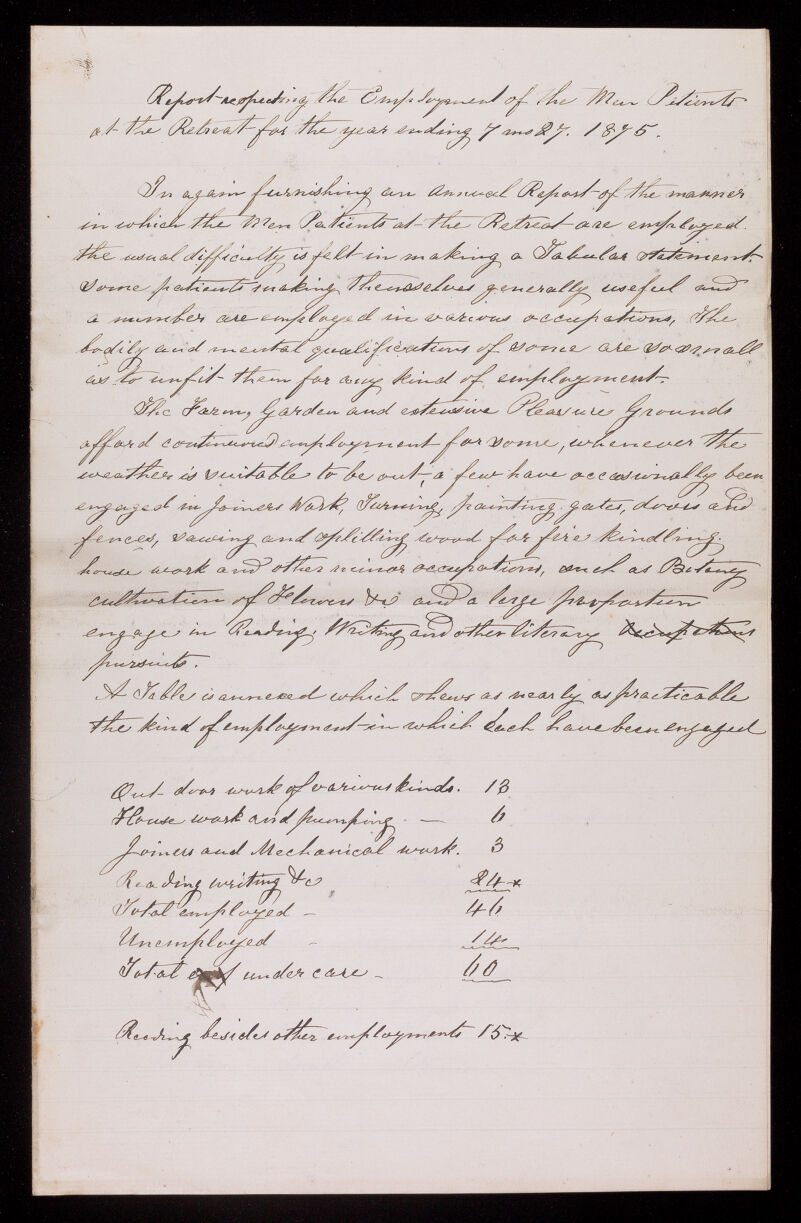 Report respecting the Employment of the Men Patients
at the Retreat for the year ending 7 mo 27. 1875.
In again furnishing an Annual Report of the manner
in which the Men Patients at the Retreat are employed.
the usual difficulty is felt in making a Tabular statement.
some patients making themselves generally useful and
a number are employed in various occupations, The
bodily and mental qualifications of some are so small
as to unfit them for any kind of employment.
The Farm, Garden and extensive Pleasure Grounds
afford continued employment for some, whenever the
weather is suitable to be out, a few have occasionally been
engaged in Joiners Work, Turning, painting gates, doors and
fences, sawing and splitting wood for fire kindling.
house work and other minor occupations, such as Botany
cultivation of Flowers &c and a large proportion
engage in Reading, Writing and other literary Occupations
pursuits.
A Table is annexed which shews as nearly as practicable
the kind of employment in which each have been engaged
Out door work of various kinds. 13
House work and pumping — 6
Joiners and Mechanical work. 3
Reading writing &c 24 x
Total employed – 46
Unemployed – 14
Total under care – 60
Reading besides other employments 15. x